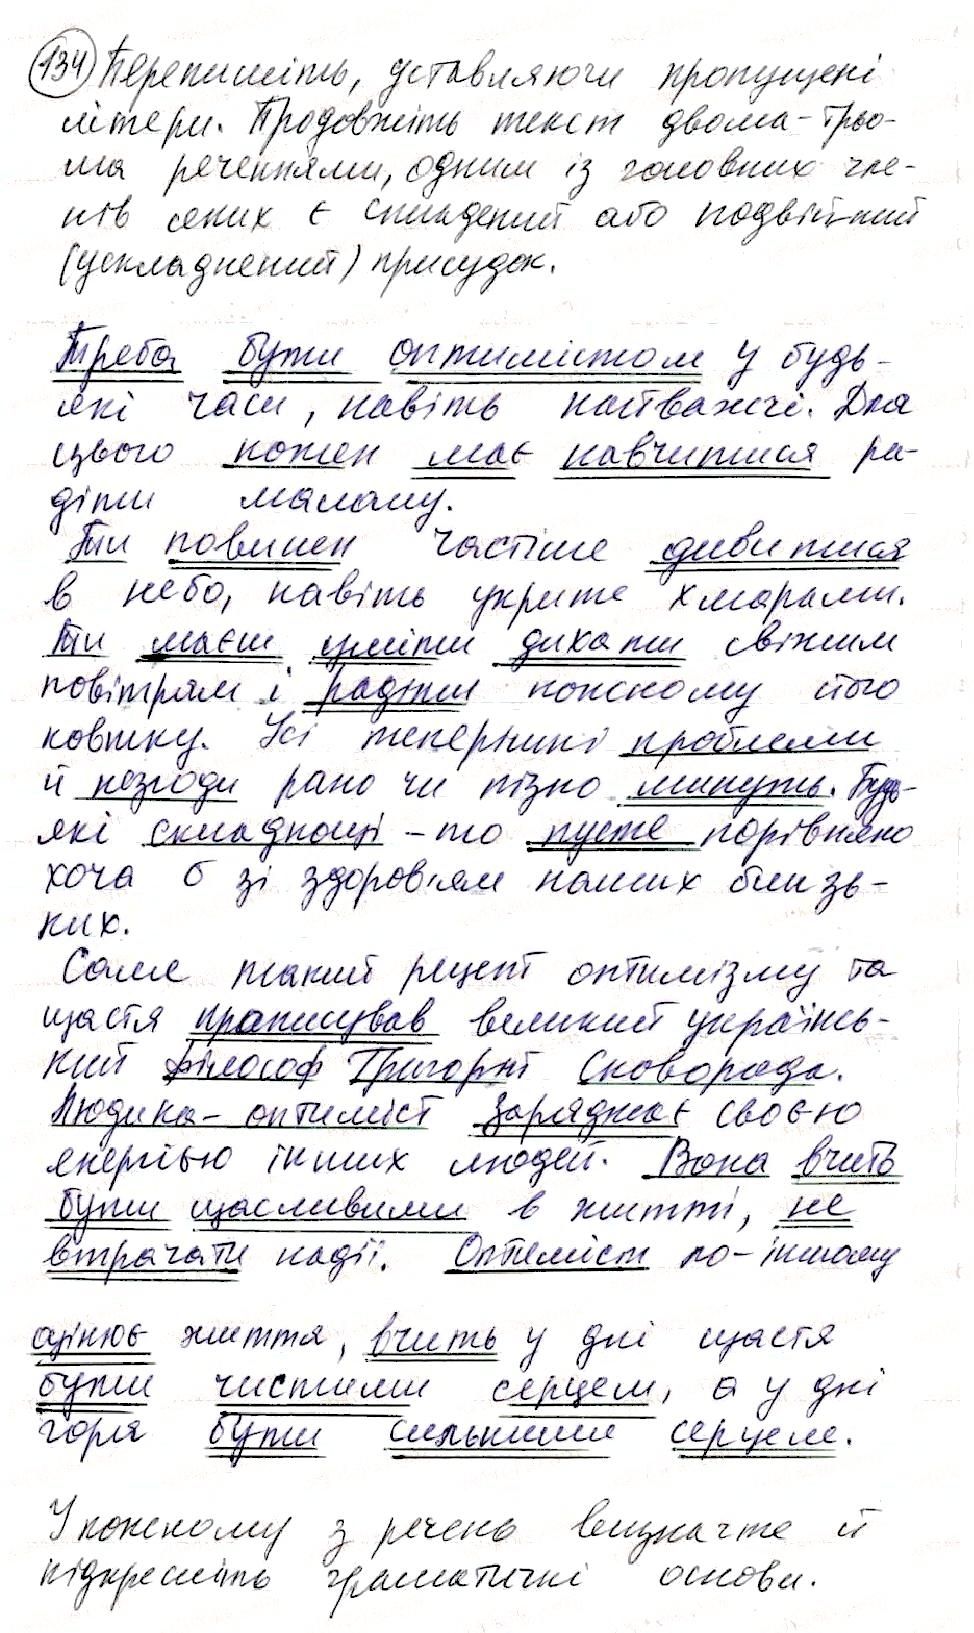 134 Перепишіть, уставляючи пропущені
літери. Продовжіть текст двома-трьо-
ма реченнями, одним із головних чле-
нів яких є складений або подвійний
(ускладнений) присудок.
Треба бути оптимістом у будь-
які часи, навіть найважчі. Для
цього кожен має навчитися ра-
діти малому.
Ти повинен частіше дивитися
в небо, навіть укрите хмарами.
Ти маєш уміти дихати свіжим
повітрям і радіти кожному його
ковтку. Усі теперішні проблеми
й незгоди рано чи пізно минуть. Будь-
які складнощі - то пусте порівняно
хоча б зі здоров'ям наших близь-
ких.
Саме такий рецепт оптимізму та
щастя прописував великий українсь-
кий філософ Григорій Сковорода.
Людина-оптиміст заряджає своєю
енергією інших людей. Вона вчить
бути щасливими в житті, не
втрачати надії. Оптиміст по-іншому
оцінює життя, вчить у дні щастя
бути чистими серцем, а у дні
горя бути сильними серцем.
У кожному з речень визначте й
підкресліть граматичні основи.